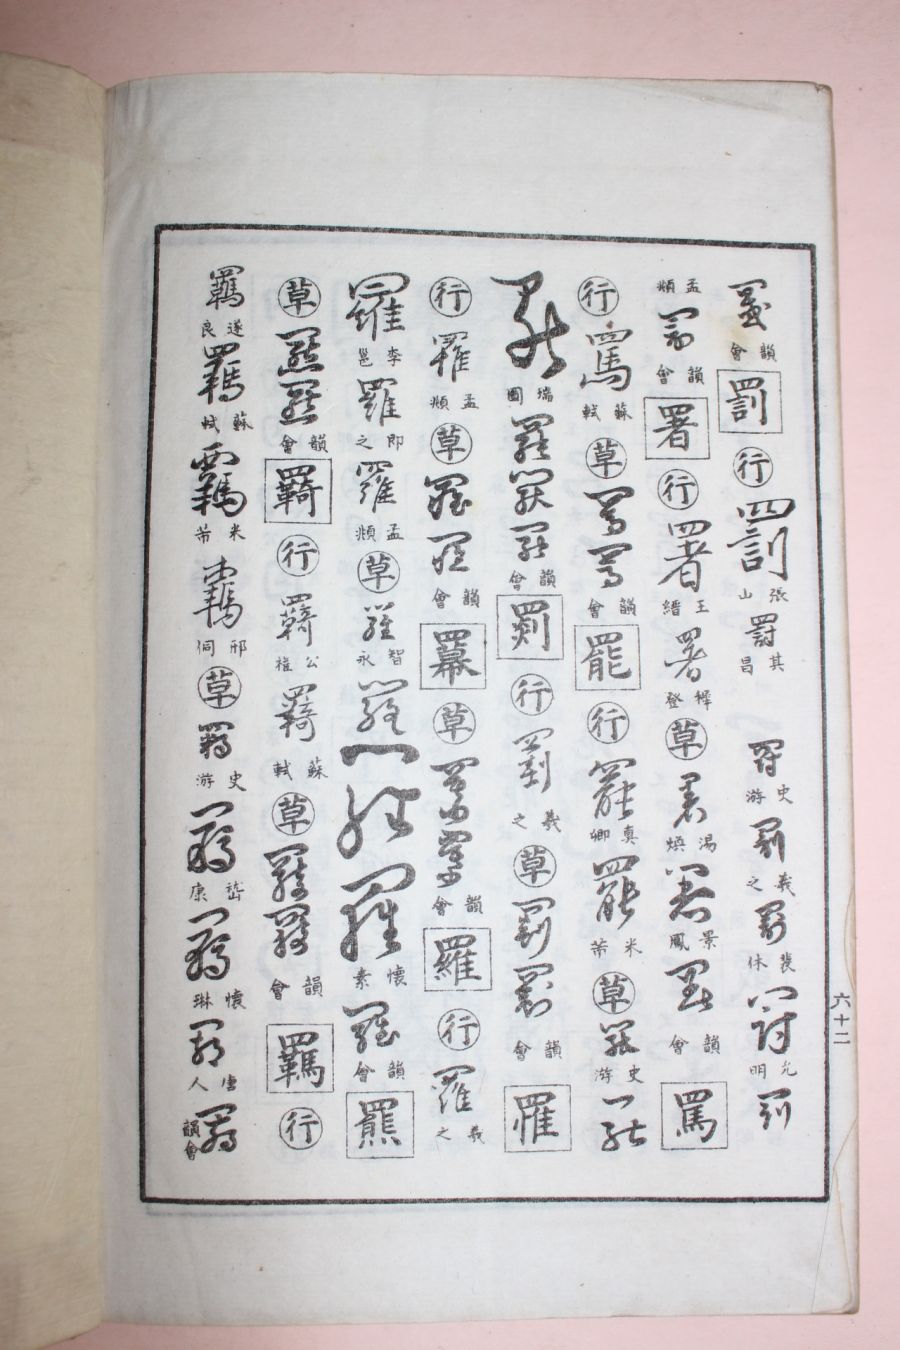 罭 韻會 罰 行 罰 張山 罰 其昌 罰 史游 罰 羲之 罰 裴休 罰 允明 罰
孟頫 罰 韻會 署 行 署 王縉 署 樨登 草 署 湯煥 署 景鳳 署 韻會 罵
行 罵 蘇軾 草 罵 罵 韻會 罷 行 罷 真卿 罷 米芾 草 罷 史游 罷
罷 瑞圖 罷 罷 罷 韻會 罽 行 罽 羲之 草 罽 罽 韻會 罹
行 罹 孟頫 草 罹 罹 韻會 羃 草 羃 羃 韻會 羅 行 羅 羲之
羅 李邕 羅 即之 羅 孟頫 草 羅 智永 羅 羅 羅 懷素 羅 韻會 羆
草 羆 羆 韻會 羇 行 羇 公權 羇 蘇軾 草 羇 羇 韻會 羈 行
羈 遂良 羈 蘇軾 羈 米芾 羈 邢侗 草 羈 史游 羈 嵇康 羈 懷琳 羈 唐人 羈 韻會
六十二